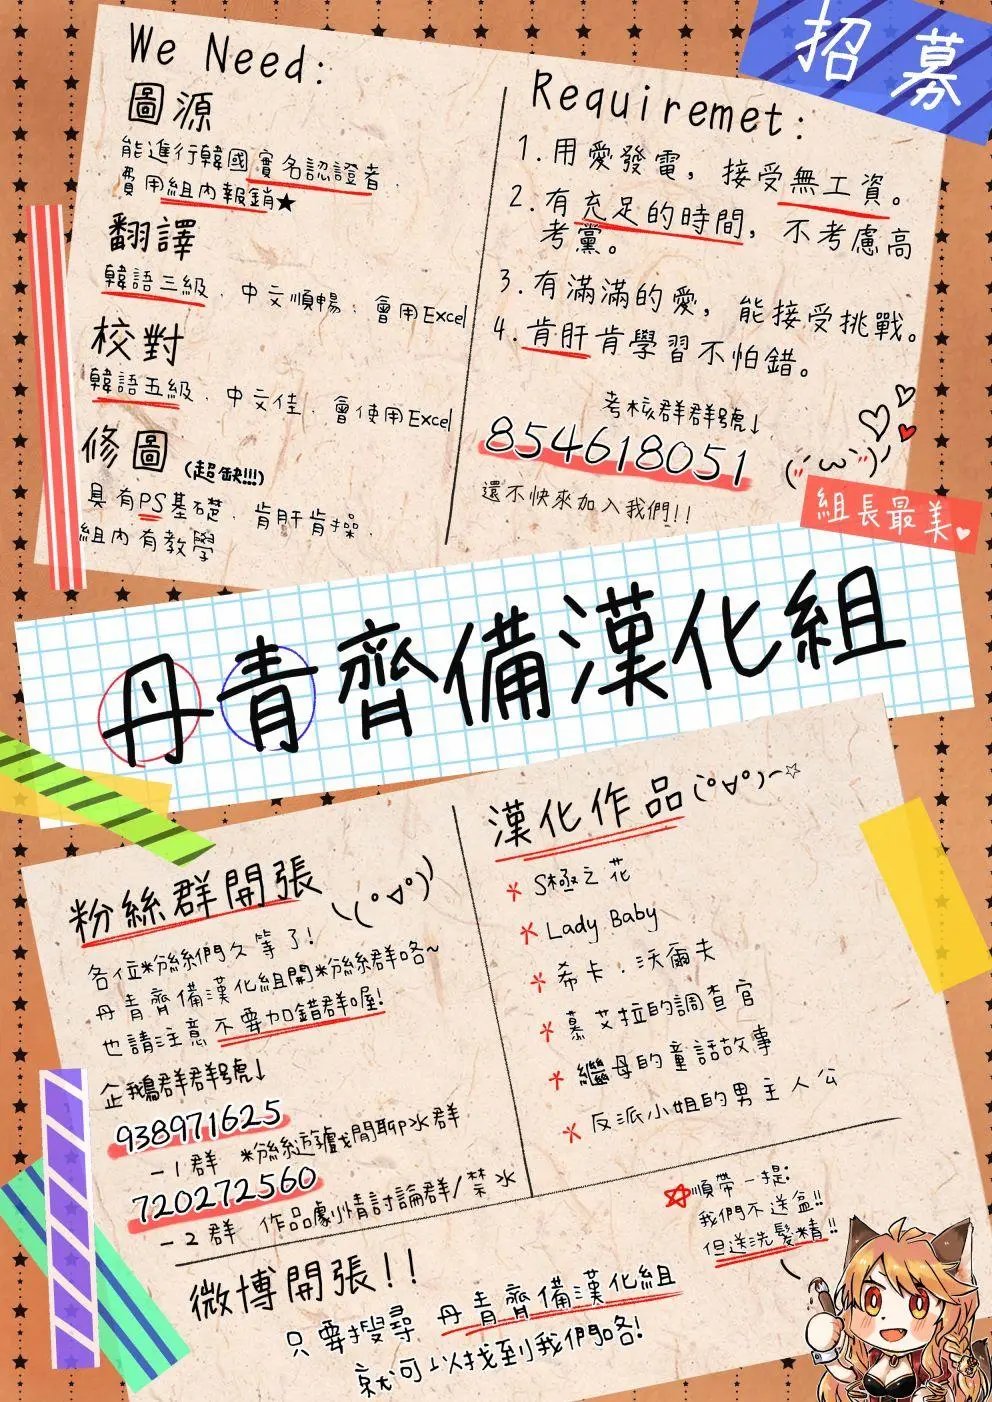 招募
We Need:
圖源
能進行韓國實名認證者.
費用組內報銷★
翻譯
韓語三級.中文順暢.會用Excel
校對
韓語五級.中文佳.會使用Excel
修圖(超缺!!!)
具有PS基礎.肯肝肯操.
組內有教學
Requiremet:
1.用愛發電，接受無工資。
2.有充足的時間，不考慮高
考黨。
3.有滿滿的愛，能接受挑戰。
4.肯肝肯學習不怕錯。
考核群群號↓
854618051
還不快來加入我們!!
組長最美♥
丹青齊備漢化組
粉絲群開張
各位粉絲們久等了!
丹青齊備漢化組開粉絲群咯~
也請注意不要加錯群喔!
企鵝群群號↓
938971625
-1群 粉絲遊戲閒聊水群
720272560
-2群 作品劇情討論群/禁水
漢化作品(°∀°)~☆
* S極之花
* Lady Baby
* 希卡.沃爾夫
* 慕艾拉的調查官
* 繼母的童話故事
* 反派小姐的男主人公
☆順帶一提:
我們不送盆!!
但送洗髮精!!
微博開張!!
只要搜尋 丹青齊備漢化組
就可以找到我們咯!